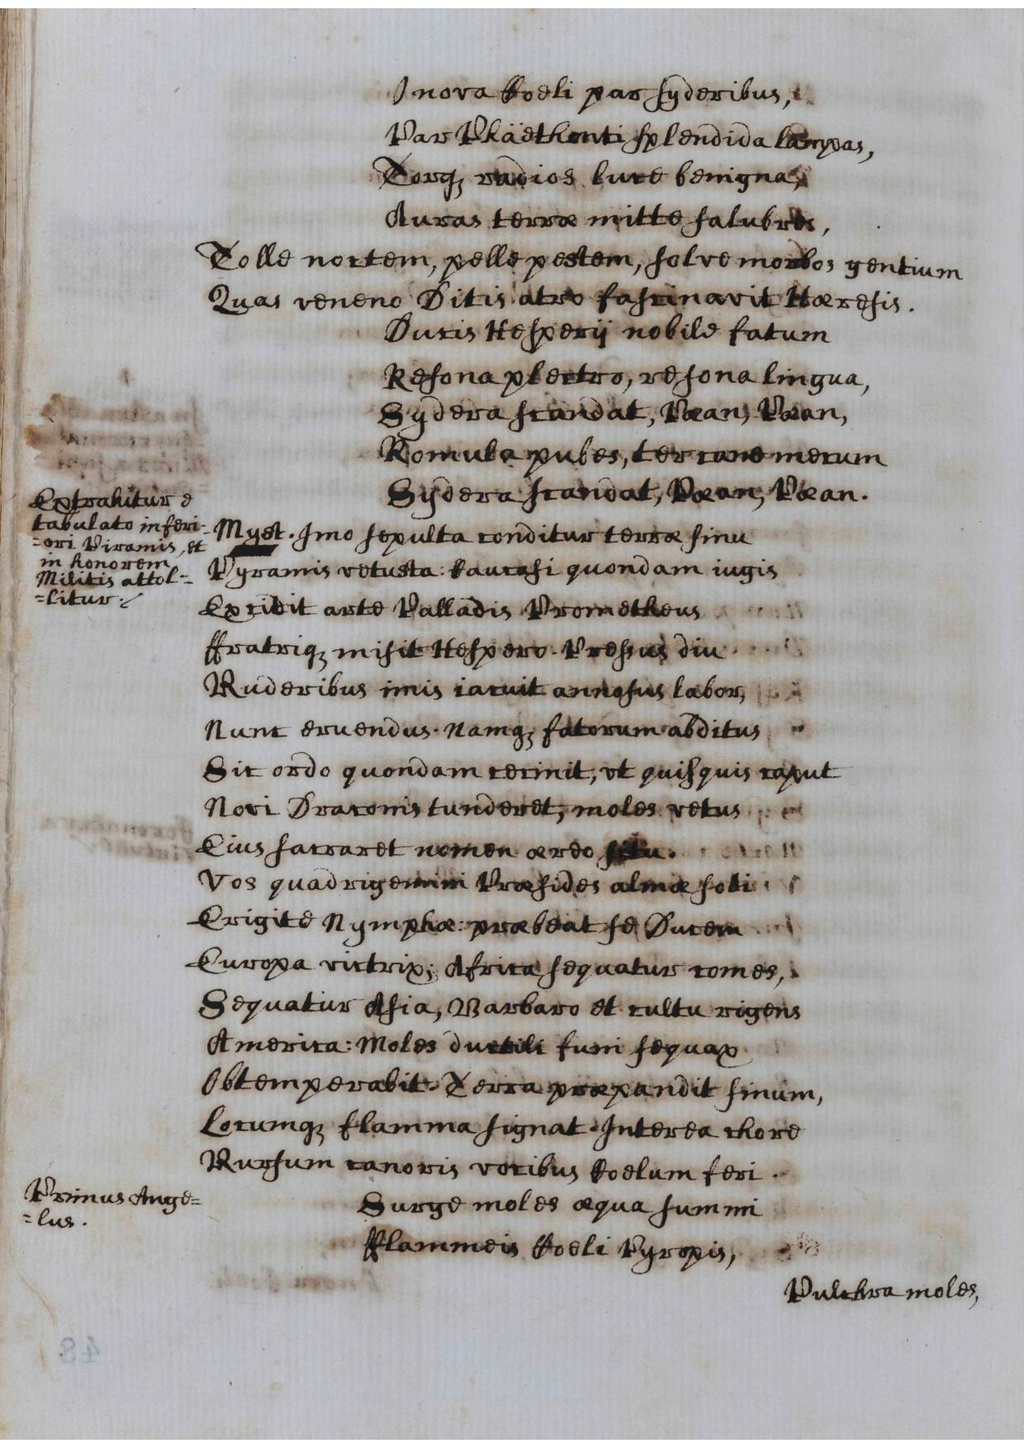 I nova Coeli par syderibus,
Par Phäethonti splendida lampas,
Torq; radios luce benigna,
Auras terræ mitte salubres,
Tolle noctem, pelle pestem, solve morbos gentium
Quas veneno Ditis atro fascinavit Hæresis.
Ducis Hesperij nobile fatum
Resona plectro, resona lingua,
Sydera scandat, Pæan, Pæan,
Romula pubes, ter cane mecum
Sydera scandat, Pæan, Pæan.
Extrahitur e
tabulato inferi-
=ori Piramis, et
in honorem
Militis attol-
=litur.
Myst. Imo sepulta conditur terræ sinu
Pyramis vetusta: Caucasi quondam iugis
Excidit arte Palladis Prometheus
ffratriq; misit Hespero. Pressus diu
Ruderibus imis iacuit annosus labor,
Nunc eruendus. Namq; fatorum abditus
Sic ordo quondam cecinit, vt quisquis caput
Noci Draconis tunderet, moles vetus
Eius sacraret nomen æreo situ.
Vos quadrigemini Præsides almæ soli
Erigite Nymphæ: præbeat se Ducem
Europa victrix; Africa sequatur comes,
Sequatur Asia, Barbaro et cultu rigens
America: Moles ductili funi sequax
Obtemperabit. Terra præpandit sinum,
Locumq; flamma signat. Interea chore
Rursum canoris vocibus Coelum feri.
Primus Ange=
=lus.
Surge moles æqua summi
fflammeis Coeli Pyropis,
Pulchra moles,
48